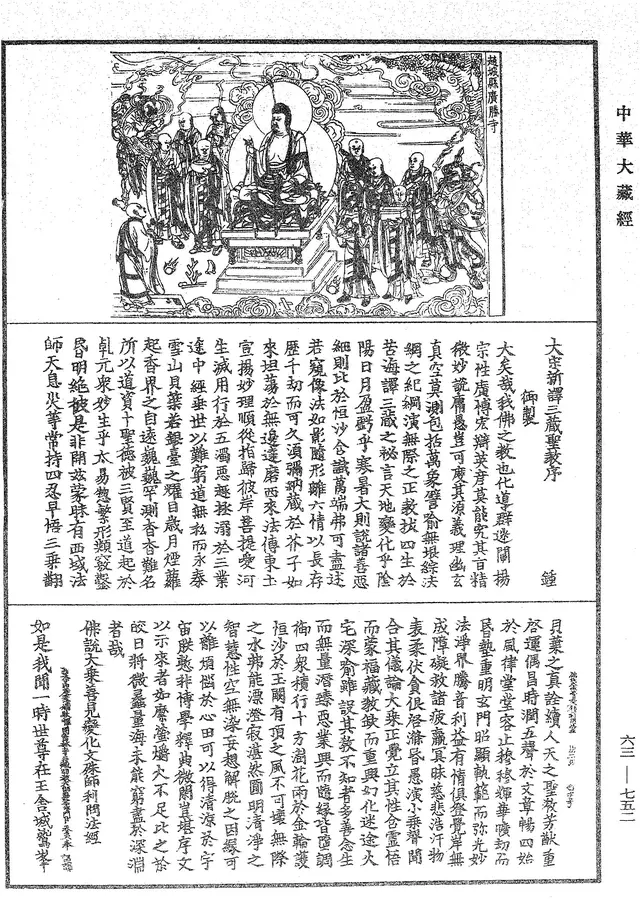 中華大藏經
趙城縣廣勝寺
大宋新譯三藏聖教序 鍾
御製
大矣哉我佛之教也化導群迷闡揚
宗性廣博宏辯英彥莫能究其旨精
微妙說庸愚豈可度其源義理幽玄
真空莫測包括萬象譬喻無垠綜法
網之紀綱演無際之正教拔四生於
苦海譯三藏之秘言天地變化乎陰
陽日月盈虧乎寒暑大則說諸善惡
細則比於恒沙含識萬端弗可盡述
若窺像法如影隨形離六情以長存
歷千劫而可久須彌納藏於芥子如
來坦蕩於無邊達磨西來法傳東土
宣揚妙理順從指歸彼岸菩提愛河
生滅用行於五濁惡趣拯溺於三業
途中經垂世以難窮道無私而永泰
雪山貝葉若銀臺之耀目歲月煙蘿
起香界之自遠巍巍罕測杳杳難名
所以道資十聖德被三賢至道起於
乹元衆妙生乎太易惣繁形類竅鑿
昏明絕彼是非開茲蒙昧有西域法
師天息災等常持四忍早悟三乘翻
貝葉之真詮續人天之聖教芳猷重
啓運偶昌時潤五聲於文章暢四始
於風律堂堂容止穆穆輝華曠劫而
昏蟄重明玄門昭顯軌範而弥光妙
法淨界騰音利益有情俱登覺岸無
成障礙救諸疲羸冥昧慈悲浩汗物
表柔伏貪佷啓滌昏愚演小乘聲聞
合其儀論大乘正覺立其性含靈悟
而蒙福藏教缺而重興幻化迷途火
宅深喻雖設其教不知者多善念生
而無量潛臻惡業興而隨緣皆墮調
御四衆積行十方澍花雨於金輪護
恒沙於玉闕有頂之風不可壞無際
之水弗能漂澄寂湛然圓明清淨之
智慧性空無染妄想解脫之因緣可
以離煩惱於心田可以得清涼於宇
宙朕慙非博學釋典微閑豈堪序文
以示來者如縻螢爝火不足比之於
皎日將微蠡量海未能窮盡於深淵
者哉
佛說大乘善見變化文殊師利問法經
如是我聞一時世尊在王舍城鷲峯
六三—七五二